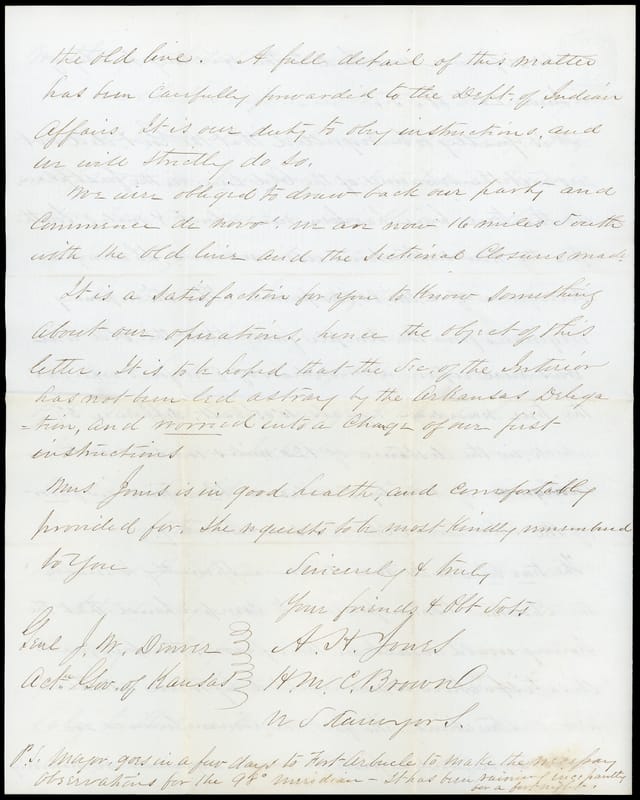 the old line. A full detail of this matter
has been carefully forwarded to the Dept. of Indian
Affairs. It is our duty to obey instructions, and
we will strictly do so.
We were obliged to draw back our party and
commence de novo! we are now 16 miles South
with the old line and the Sectional Closures made
It is a satisfaction for you to know something
about our operations, hence the object of this
letter. It is to be hoped that the Sec. of the Interior
has not been led astray by the Arkansas Delega
=tion, and worried into a Change of our first
instructions
Mrs Jones is in good health, and comfortably
provided for. She requests to be most kindly remembered
to You
Sincerely & truly
Your friends & Obt Svts
Genl J. W. Denver
Actg Gov. of Kansas
A. H. Jones
H. M. C. Brown
U S Surveyors.
P.S. Major goes in a few days to Fort Arbucle to make the necessary
observations for the 98° meridian - It has been raining incessantly
for a fortnight.